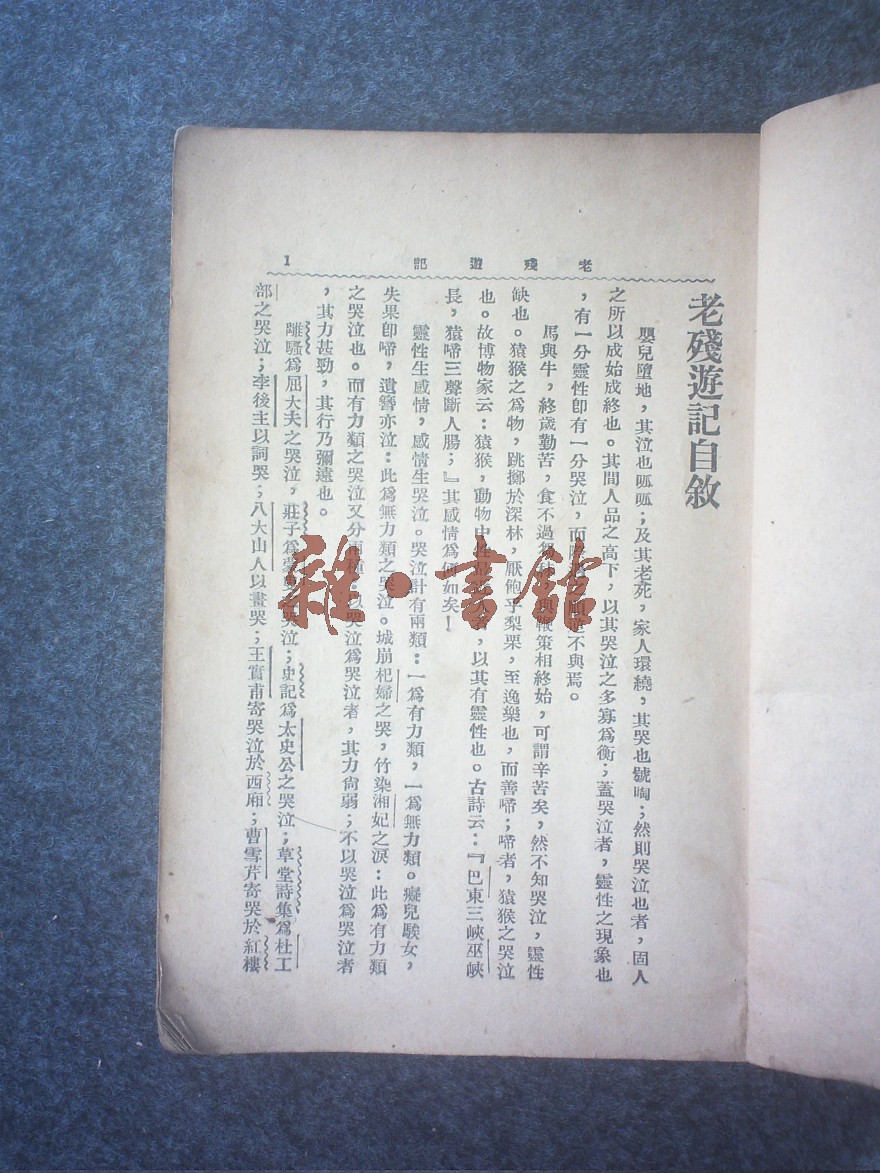 老殘遊記 1
老殘遊記自敘
嬰兒墮地,其泣也呱呱;及其老死,家人環繞,其哭也號啕;然則哭泣也者,固人
之所以成始成終也。其間人品之高下,以其哭泣之多寡爲衡;蓋哭泣者,靈性之現象也
,有一分靈性卽有一分哭泣,而之不與焉。
馬與牛,終歲勤苦,食不過與鞭策相終始,可謂辛苦矣,然不知哭泣,靈性
缺也。猿猴之爲物,跳擲於深林,厭飽乎梨栗,至逸樂也,而善啼;啼者,猿猴之哭泣
也。故博物家云:猿猴,動物中性者,以其有靈性也。古詩云:『巴東三峽巫峽
長,猿啼三聲斷人腸;』其感情爲何如矣!
靈性生感情,感情生哭泣。哭泣計有兩類:一爲有力類,一爲無力類。癡兒騃女,
失果卽啼,遺簪亦泣:此爲無力類之哭泣。城崩杞婦之哭,竹染湘妃之淚:此爲有力類
之哭泣也。而有力類之哭泣又分兩以哭泣爲哭泣者,其力尙弱;不以哭泣爲哭泣者
,其力甚勁,其行乃彌遠也。
離騷爲屈大夫之哭泣,莊子爲之哭泣;史記爲太史公之哭泣;草堂詩集爲杜工
部之哭泣;李後主以詞哭;八大山人以畫哭;王實甫寄哭泣於西廂;曹雪芹寄哭於紅樓
雜·書館